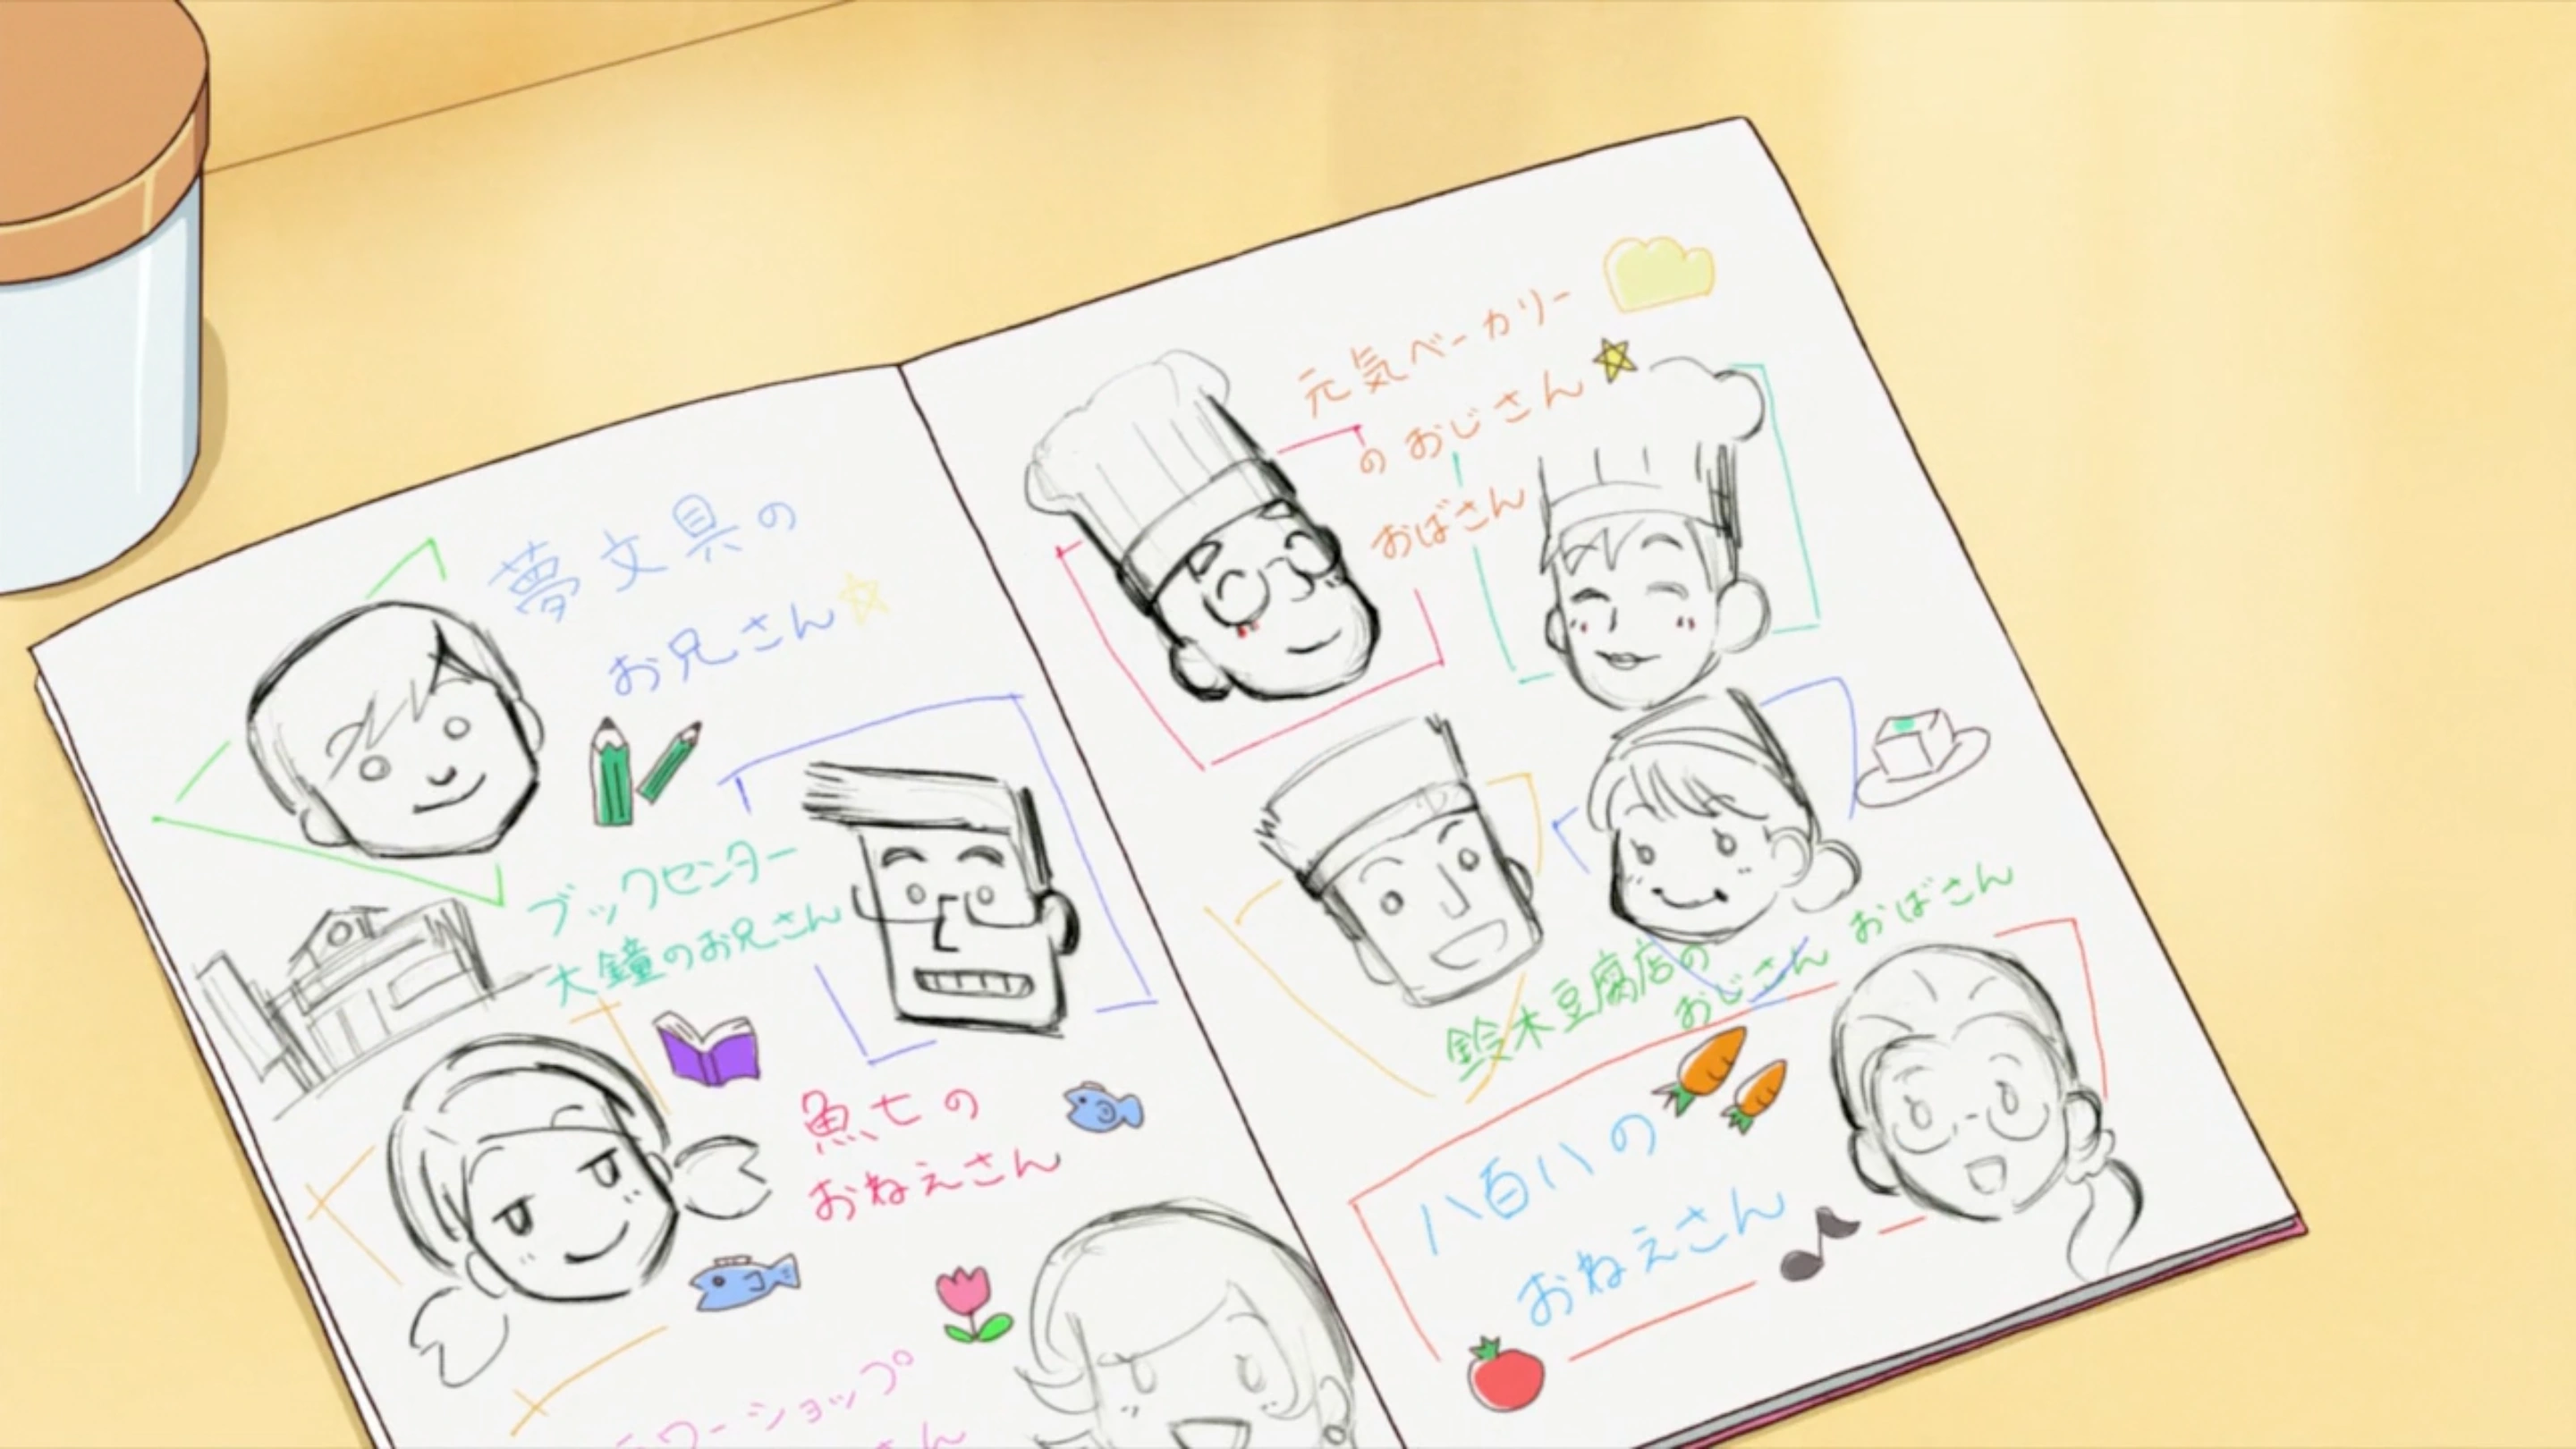 夢文具の
お兄さん
ブックセンター
大鐘のお兄さん
魚七の
おねえさん
ラワーショップ
さん
元気ベーカリー
のおじさん
おばさん
鈴木豆腐店の
おじさん おばさん
八百八の
おねえさん